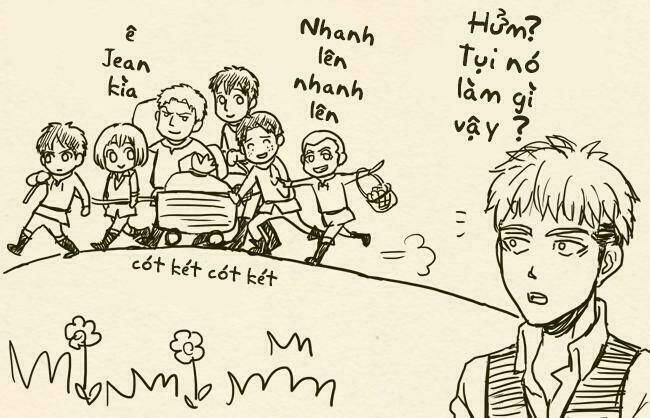 ê
Jean
kìa
Nhanh
lên
nhanh
lên
Hửm?
Tụi nó
làm gì
vậy ?
cót két cót két